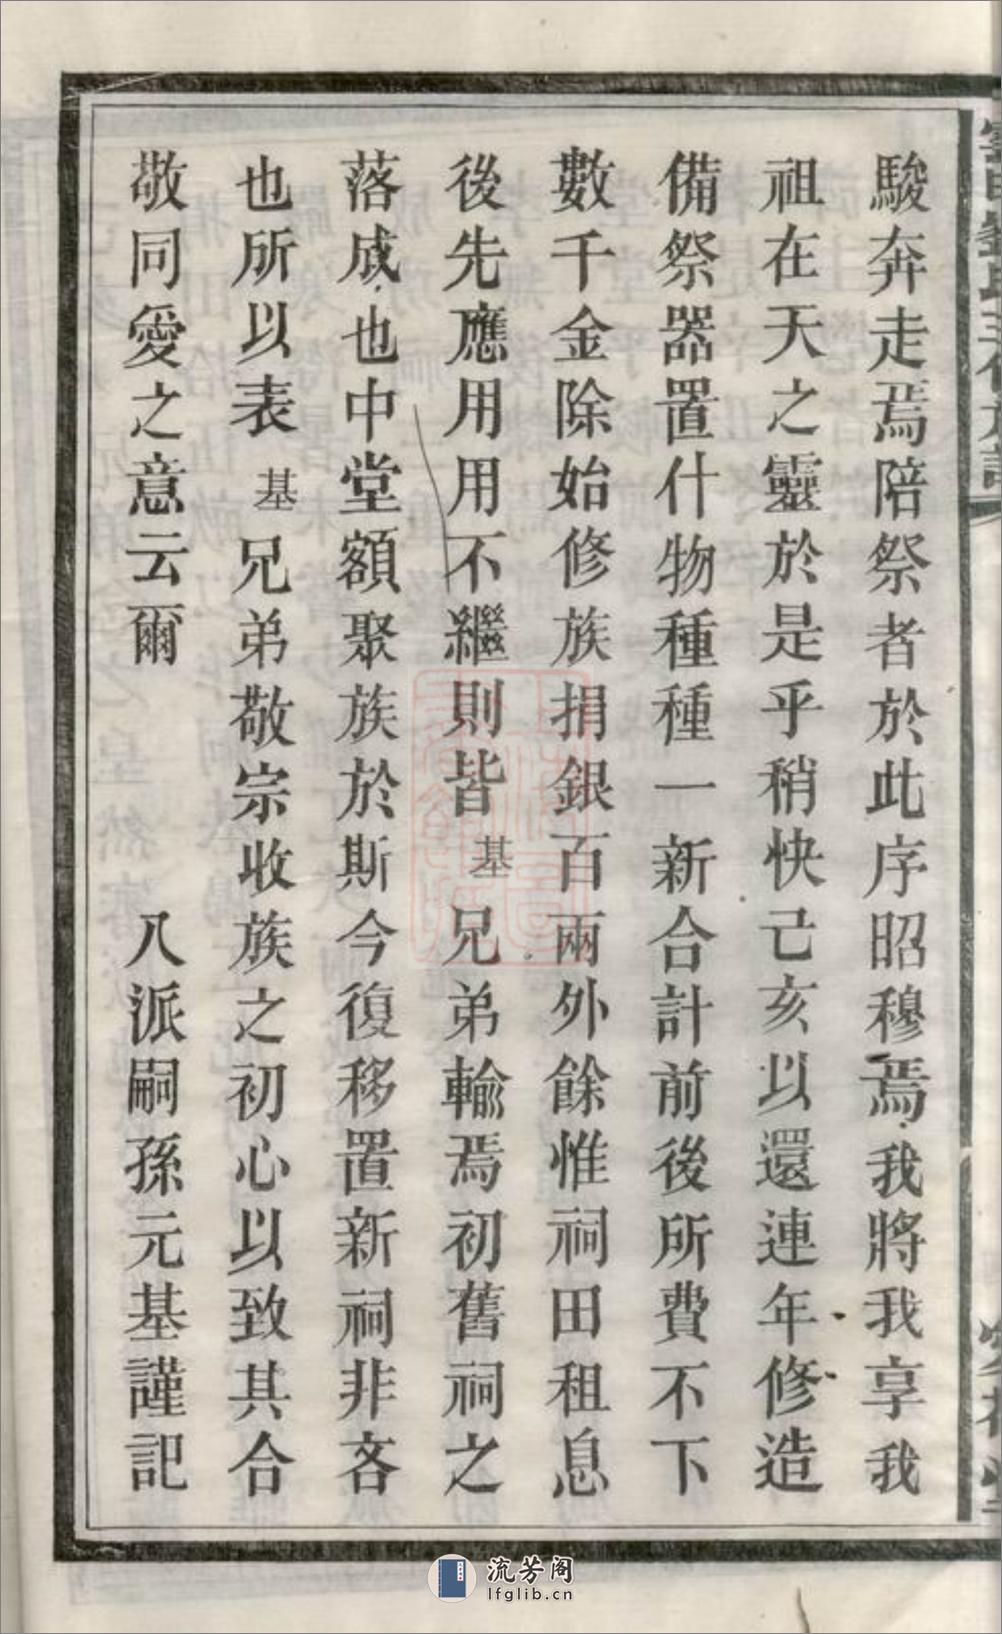 駿奔走焉陪祭者於此序昭穆焉我將我享我
祖在天之靈於是乎稍快己亥以還連年修造
備祭器置什物種種一新合計前後所費不下
數千金除始修族捐銀百兩外餘惟祠田租息
後先應用用不繼則皆基兄弟輸焉初舊祠之
落成也中堂額聚族於斯今復移置新祠非吝
也所以表基兄弟敬宗收族之初心以致其合
敬同愛之意云爾 八派嗣孫元基謹記
流芳阁
lfglib.cn